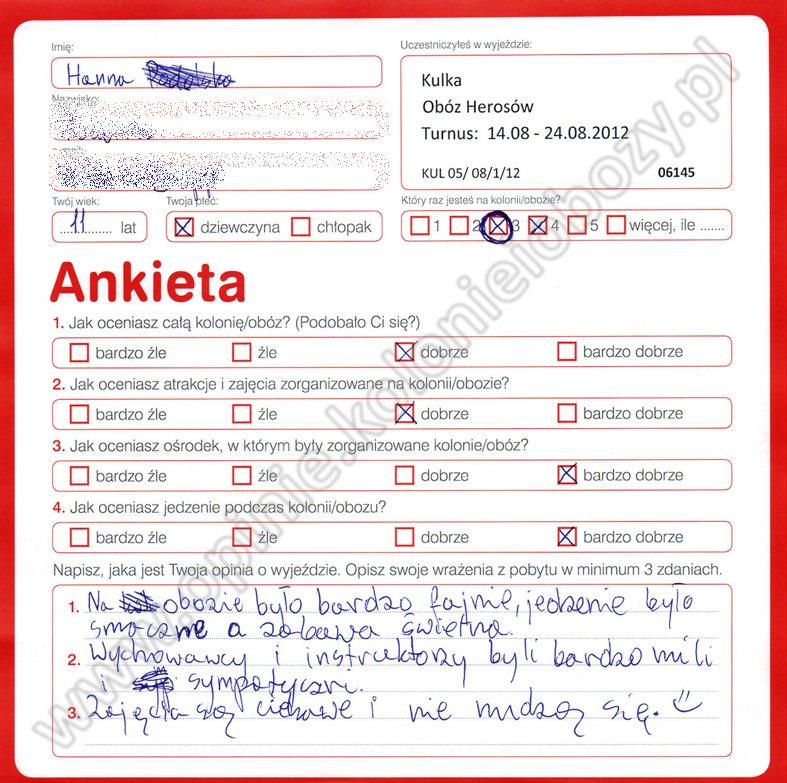 Imię:
Hanna
Nazwisko:
e-mail:
Twój wiek:
11 lat
Twoja płeć:
dziewczyna chłopak
Uczestniczyłeś w wyjeździe:
Kulka
Obóz Herosów
Turnus: 14.08 - 24.08.2012
KUL 05/ 08/1/12 06145
Który raz jesteś na kolonii/obozie?
1 2 3 4 5 więcej, ile .......
Ankieta
1. Jak oceniasz całą kolonię/obóz? (Podobało Ci się?)
bardzo źle źle dobrze bardzo dobrze
2. Jak oceniasz atrakcje i zajęcia zorganizowane na kolonii/obozie?
bardzo źle źle dobrze bardzo dobrze
3. Jak oceniasz ośrodek, w którym były zorganizowane kolonie/obóz?
bardzo źle źle dobrze bardzo dobrze
4. Jak oceniasz jedzenie podczas kolonii/obozu?
bardzo źle źle dobrze bardzo dobrze
Napisz, jaka jest Twoja opinia o wyjeździe. Opisz swoje wrażenia z pobytu w minimum 3 zdaniach.
1. Na obozie było bardzo fajnie, jedzenie było
smaczne a zabawa świetna.
2. Wychowawcy i instruktorzy byli bardzo mili
i sympatyczni.
3. Zajęcia są ciekawe i nie nudzą się.
www.opinie.kolonieiobozy.pl